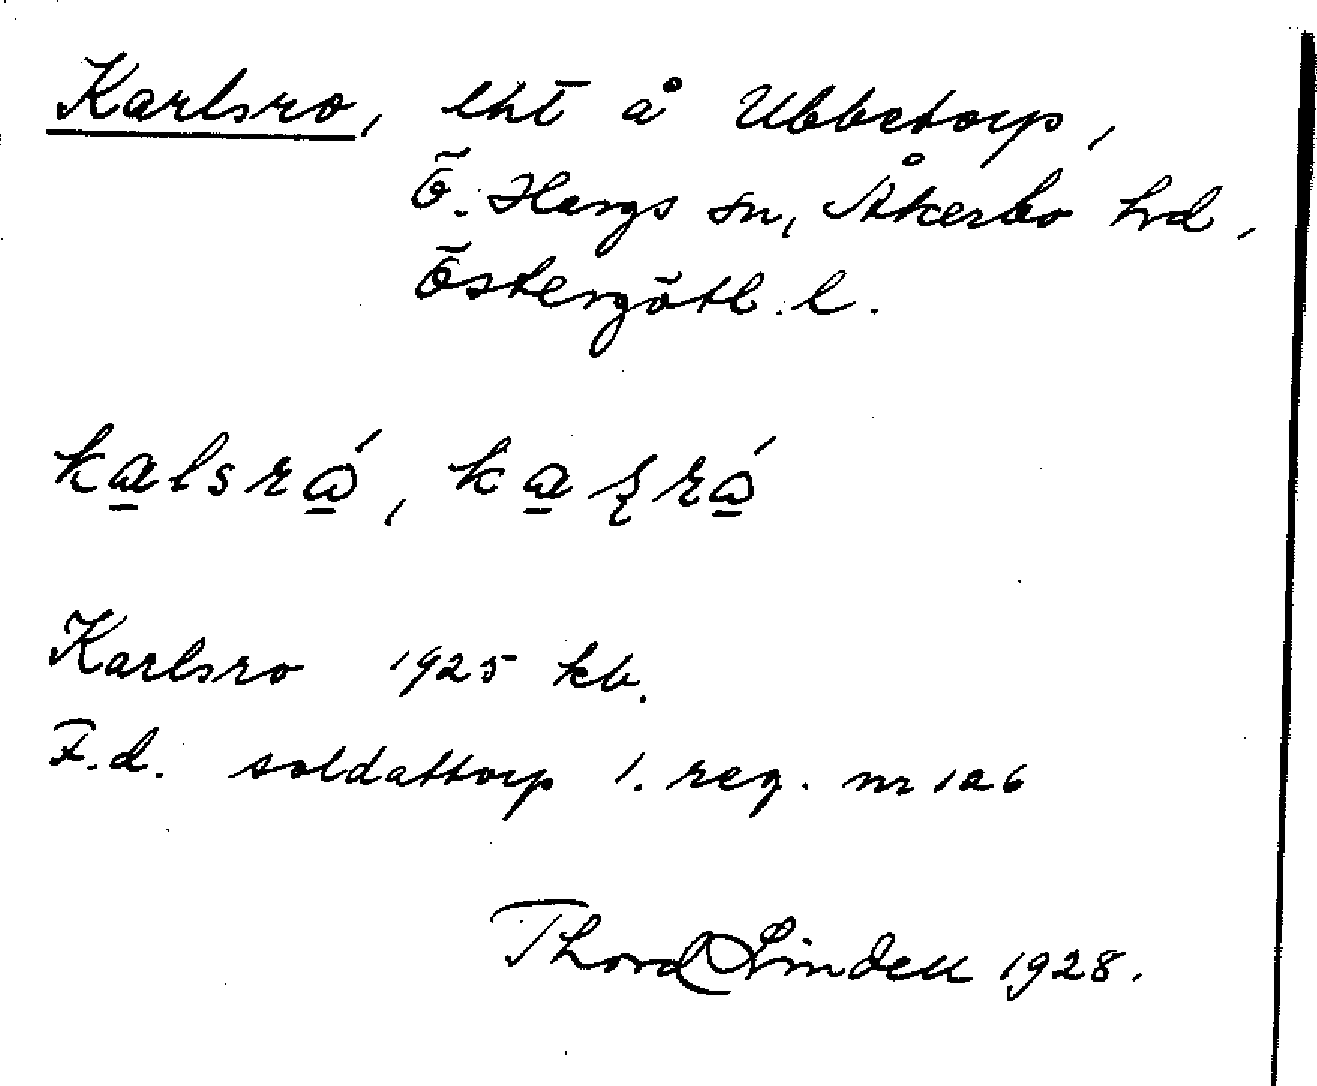 Karlsro, lht å Ubbetorp,
Ö. Hargs sn, Åkerbo hd,
Östergötl. l.
Karlsro 1925 kb.
F.d. soldattorp 1. reg. nr 126
Thord Lindell 1928.